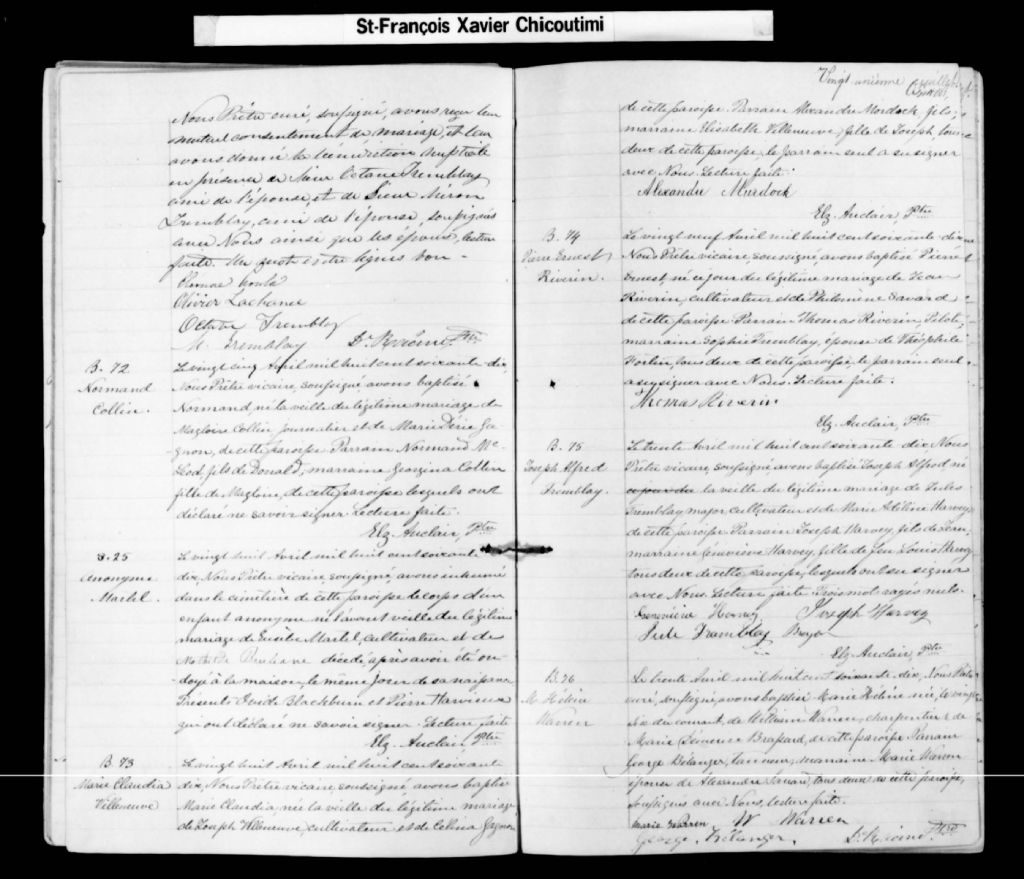 St-François Xavier Chicoutimi
Nous Prêtre curé, soussigné, avons reçu leur
mutuel consentement de mariage, et leur
avons donné la bénédiction nuptiale
en présence de Sieur Octave Tremblay
ami de l'épouse, et de Sieur Méron
Tremblay, ami de l'épouse, soussignés
avec Nous ainsi que les époux, lecture
faite.
Olivier Lachance
Octave Tremblay
M. Tremblay D. Racine Ptre
B. 72
Normand
Collin.
Le vingt cinq Avril mil huit cent soixante dix,
Nous Prêtre vicaire, soussigné avons baptisé
Normand, né la veille du légitime mariage de
Magloire Collin, journalier et de Marie Dérie Ga-
gnon, de cette paroisse Parrain Normand Mc
Leod fils de Donald; marraine Georgina Collin
fille de Magloire, de cette paroisse lesquels ont
déclaré ne savoir signer. Lecture faite.
Elz. Auclair, Ptre
S. 25
Anonyme
Martel.
Le vingt huit Avril mil huit cent soixante
dix, Nous Prêtre vicaire, soussigné, avons inhumé
dans le cimetière de cette paroisse le corps d'un
enfant anonyme né l'avant veille du légitime
mariage de Martel, cultivateur et de
Mathilde décédé, après avoir été on-
doyé à la maison, le même jour de sa naissance
Présents Ovide Blackburn et Pierre
qui ont déclaré ne savoir signer. Lecture faite
Elz. Auclair Ptre
B. 73
Marie Claudia
Villeneuve
Le vingt huit Avril mil huit cent soixante
dix, Nous Prêtre vicaire, soussigné, avons baptisé
Marie Claudia, née la veille du légitime mariage
de Joseph Villeneuve, cultivateur et de Célina Gagnon
Vingt unième feuillet
de cette paroisse. Parrain Alexandre Murdock fils;
marraine Elisabeth Villeneuve, fille de Joseph, tous
deux de cette paroisse, le parrain seul a su signer
avec Nous. Lecture faite.
Alexandre Murdock
Elz. Auclair, Ptre
B. 74
Pierre Ernest
Riverin.
Le vingt neuf Avril mil huit cent soixante dix
Nous Prêtre vicaire, soussigné, avons baptisé Pierre
Ernest, né ce jour du légitime mariage de
Riverin, cultivateur et de Philomène Savard
de cette paroisse. Parrain Thomas Riverin, Pilote,
marraine Sophie Tremblay, épouse de Théophile
Fortin, tous deux de cette paroisse, le parrain seul
a su signer avec Nous. Lecture faite.
Thomas Riverin
Elz. Auclair, Ptre
B. 75
Joseph Alfred
Tremblay.
Le trente Avril mil huit cent soixante dix, Nous
Prêtre vicaire, soussigné, avons baptisé Joseph Alfred né
ce jour du la veille du légitime mariage de Jules
Tremblay major cultivateur et de Marie Adéline Harvey
de cette paroisse Parrain Joseph Harvey, fils de Jean,
marraine Geneviève Harvey, fille de feu Louis Harvey
tous deux de cette paroisse, lesquels ont su signer
avec Nous. Lecture faite Trois mots rayés nuls.
Geneviève Harvey Joseph Harvey
Jule Tramblay
Elz. Auclair, Ptre
B. 76
M. Hélène
Warren
Le trente Avril mil huit cent soixante dix, Nous Prêtre
curé, soussigné, avons baptisé Marie Hélène née, le vingt
six du courant, de William Warren, charpentier & de
Marie Démerise Brassard, de cette paroisse Parrain
George Belanger, tanneur; marraine Marie Warren
épouse de Alexandre Savard, tous deux de cette paroisse,
soussignés avec Nous, lecture faite.
Marie Warren W Warren
George Bélanger. D. Racine Ptre